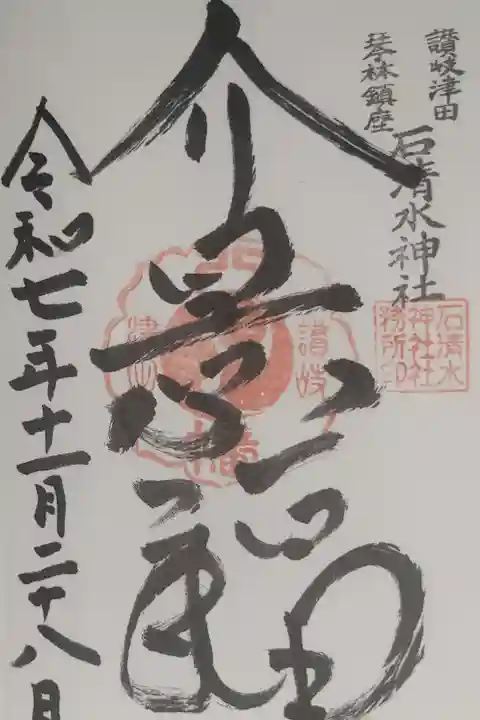 讃岐津田
琴林鎮座
石清水神社
石清水
神社社
務所印
介景福
讃岐
令和七年十一月二十八日